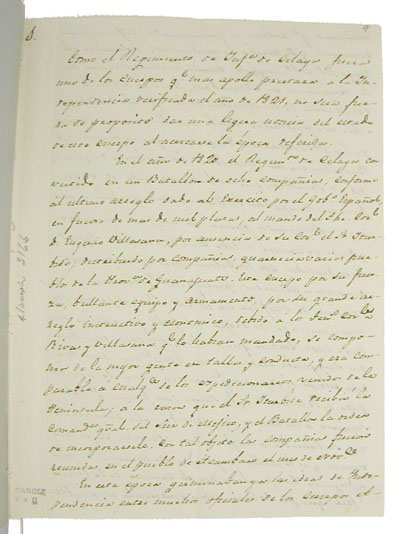 Como el Regimiento de Infª de Celaya fuera
uno de los cuerpos qe mas apollo prestara a la In-
dependencia verificada el año de 1821, no sera fue-
ra de proposito dar una ligera noticia del estado
de ese cuerpo al acercarse la época referida.
En el año de 1820 el Regimto de Celaya con-
vertido en un Batallon de ocho compañias, conforme
al ultimo arreglo dado al Exercito por el Gobo Español,
en fuerza de mas de mil plazas, al mando del The Corl
D. Eugenio Villasana, por ausencia de su Corl el Sr Itur-
bide, distribuido por compañias guarnecia varios pue-
blos de la Prova de Guanajuato. Este cuerpo por su fuer-
za, brillante equipo y armamento, por su grande ar-
reglo instructivo y economico, debido a los
Rivas y Villasana qe lo habian mandado, se compo-
nia de la mejor gente en talla y conducta, y era com-
parable a cualqa de los expedicionarios venidos de la
Peninsula; a la vez que el Sr Iturbide recibia la
Comanda gral del Sur de Mejico, y el Batallon la orden
de incorporarsele. Con tal objeto las compañias fueron
reunidas en el pueblo de Acambaro el mes de
En esta época germinaban ya las ideas de Inde-
pendencia entre muchos oficiales de los cuerpos
GARCIA